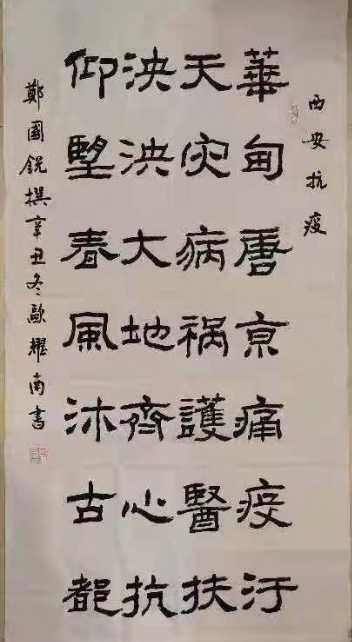 西安抗疫
華甸唐京痛疫汙
天灾病祸護醫扶
泱泱大地齊心抗
仰朢春風沐古都
鄭國銳撰辛丑冬歐耀南書